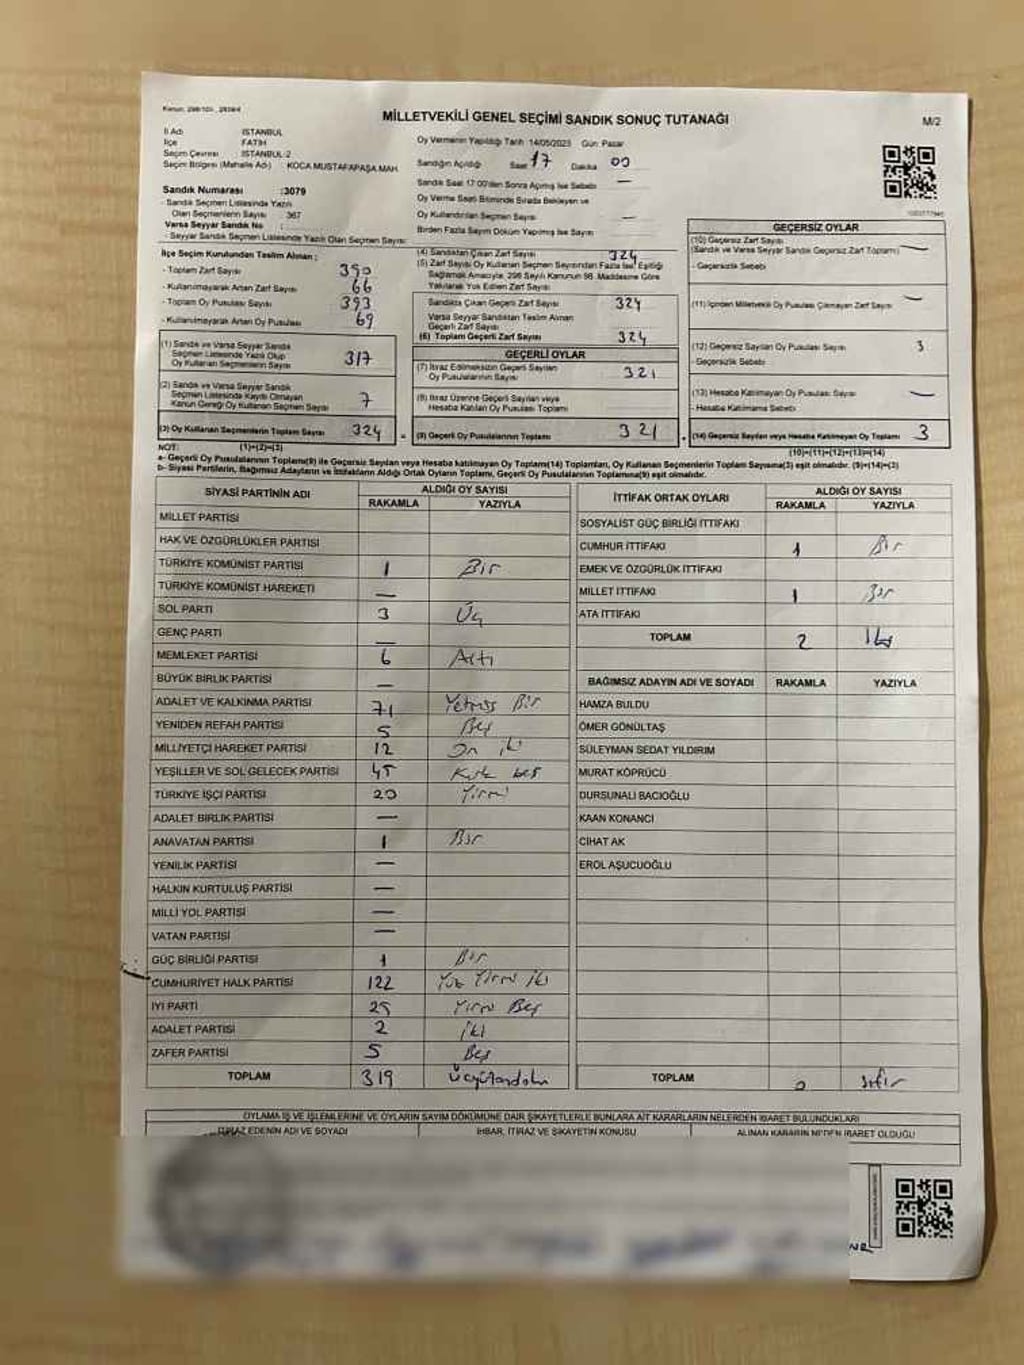 Kanun: 298/105 , 2839/4
MİLLETVEKİLİ GENEL SEÇİMİ SANDIK SONUÇ TUTANAĞI
M/2
İl Adı : İSTANBUL
İlçe : FATİH
Seçim Çevresi : İSTANBUL-2
Seçim Bölgesi (Mahalle Adı) : KOCA MUSTAFAPAŞA MAH.
Sandık Numarası :3079
- Sandık Seçmen Listesinde Yazılı
Olan Seçmenlerin Sayısı : 367
Varsa Seyyar Sandık No :
- Seyyar Sandık Seçmen Listesinde Yazılı Olan Seçmen Sayısı:
Oy Vermenin Yapıldığı Tarih :14/05/2023 Gün: Pazar
Sandığın Açıldığı Saat 17 Dakika 00
Sandık Saat 17:00'den Sonra Açılmış İse Sebebi —
Oy Verme Saati Bitiminde Sırada Bekleyen ve
Oy Kullandırılan Seçmen Sayısı —
Birden Fazla Sayım Döküm Yapılmış İse Sayısı
İlçe Seçim Kurulundan Teslim Alınan ;
- Toplam Zarf Sayısı 390
- Kullanılmayarak Artan Zarf Sayısı 66
- Toplam Oy Pusulası Sayısı 393
- Kullanılmayarak Artan Oy Pusulası 69
(1) Sandık ve Varsa Seyyar Sandık
Seçmen Listesinde Yazılı Olup
Oy Kullanan Seçmenlerin Sayısı 317
(2) Sandık ve Varsa Seyyar Sandık
Seçmen Listesinde Kayıtlı Olmayan
Kanun Gereği Oy Kullanan Seçmen Sayısı 7
(3) Oy Kullanan Seçmenlerin Toplam Sayısı 324
(4) Sandıktan Çıkan Zarf Sayısı 324
(5) Zarf Sayısı Oy Kullanan Seçmen Sayısından Fazla İse, Eşitliği
Sağlamak Amacıyla, 298 Sayılı Kanunun 98. Maddesine Göre
Yakılarak Yok Edilen Zarf Sayısı
Sandıkta Çıkan Geçerli Zarf Sayısı 324
Varsa Seyyar Sandıktan Teslim Alınan
Geçerli Zarf Sayısı
(6) Toplam Geçerli Zarf Sayısı 324
GEÇERLİ OYLAR
(7) İtiraz Edilmeksizin Geçerli Sayılan
Oy Pusulalarının Sayısı 321
(8) İtiraz Üzerine Geçerli Sayılan veya
Hesaba Katılan Oy Pusulası Toplamı
= (9) Geçerli Oy Pusulalarının Toplamı 321
GEÇERSİZ OYLAR
(10) Geçersiz Zarf Sayısı
(Sandık ve Varsa Seyyar Sandık Geçersiz Zarf Toplamı) —
- Geçersizlik Sebebi
(11) İçinden Milletvekili Oy Pusulası Çıkmayan Zarf Sayısı —
(12) Geçersiz Sayılan Oy Pusulası Sayısı 3
- Geçersizlik Sebebi
(13) Hesaba Katılmayan Oy Pusulası Sayısı —
- Hesaba Katılmama Sebebi
(14) Geçersiz Sayılan veya Hesaba Katılmayan Oy Toplamı 3
NOT: (1)+(2)=(3) (10)+(11)+(12)+(13)=(14)
a- Geçerli Oy Pusulalarının Toplamı(9) ile Geçersiz Sayılan veya Hesaba katılmayan Oy Toplam(14) Toplamları, Oy Kullanan Seçmenlerin Toplam Sayısına(3) eşit olmalıdır. (9)+(14)=(3)
b- Siyasi Partilerin, Bağımsız Adayların ve İttifakların Aldığı Ortak Oyların Toplamı, Geçerli Oy Pusulalarının Toplamına(9) eşit olmalıdır.
SİYASİ PARTİNİN ADI ALDIĞI OY SAYISI
RAKAMLA YAZIYLA
MİLLET PARTİSİ
HAK VE ÖZGÜRLÜKLER PARTİSİ
TÜRKİYE KOMÜNİST PARTİSİ 1 Bir
TÜRKİYE KOMÜNİST HAREKETİ —
SOL PARTİ 3 Üç
GENÇ PARTİ —
MEMLEKET PARTİSİ 6 Altı
BÜYÜK BİRLİK PARTİSİ —
ADALET VE KALKINMA PARTİSİ 71 Yetmiş Bir
YENİDEN REFAH PARTİSİ 5 Beş
MİLLİYETÇİ HAREKET PARTİSİ 12 On iki
YEŞİLLER VE SOL GELECEK PARTİSİ 45 Kırk beş
TÜRKİYE İŞÇİ PARTİSİ 20 Yirmi
ADALET BİRLİK PARTİSİ —
ANAVATAN PARTİSİ 1 Bir
YENİLİK PARTİSİ —
HALKIN KURTULUŞ PARTİSİ —
MİLLİ YOL PARTİSİ —
VATAN PARTİSİ —
GÜÇ BİRLİĞİ PARTİSİ 1 Bir
CUMHURİYET HALK PARTİSİ 122 Yüz Yirmi iki
İYİ PARTİ 25 Yirmi Beş
ADALET PARTİSİ 2 iki
ZAFER PARTİSİ 5 Beş
TOPLAM 319 Üçyüzondoku
İTTİFAK ORTAK OYLARI ALDIĞI OY SAYISI
RAKAMLA YAZIYLA
SOSYALİST GÜÇ BİRLİĞİ İTTİFAKI
CUMHUR İTTİFAKI 1 Bir
EMEK VE ÖZGÜRLÜK İTTİFAKI
MİLLET İTTİFAKI 1 Bir
ATA İTTİFAKI
TOPLAM 2 iki
BAĞIMSIZ ADAYIN ADI VE SOYADI RAKAMLA YAZIYLA
HAMZA BULDU
ÖMER GÖNÜLTAŞ
SÜLEYMAN SEDAT YILDIRIM
MURAT KÖPRÜCÜ
DURSUNALİ BACIOĞLU
KAAN KONANCI
CİHAT AK
EROL AŞUCUOĞLU
TOPLAM 0 sıfır
OYLAMA İŞ VE İŞLEMLERİNE VE OYLARIN SAYIM DÖKÜMÜNE DAİR ŞİKAYETLERLE BUNLARA AİT KARARLARIN NELERDEN İBARET BULUNDUKLARI
İTİRAZ EDENİN ADI VE SOYADI İHBAR, İTİRAZ VE ŞİKAYETİN KONUSU ALINAN KARARIN NEDEN İBARET OLDUĞU